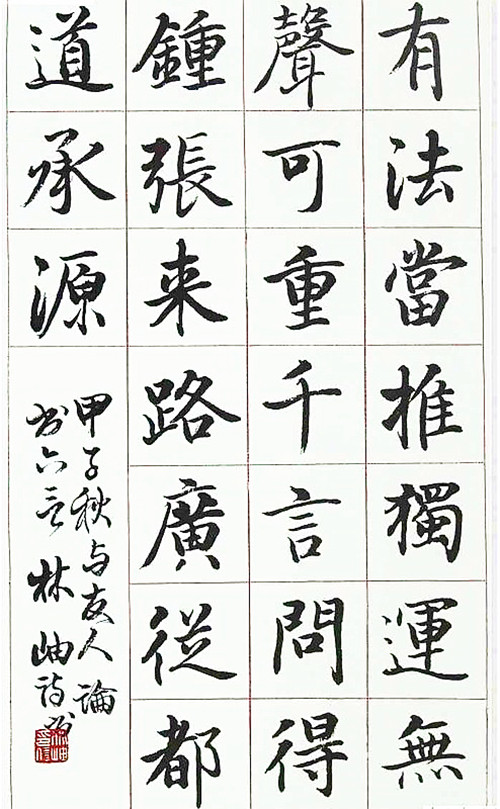 有法當推獨運無
聲可重千言問得
鍾張来路廣從都
道承源
甲子秋与友人論
书六言 林岫詩